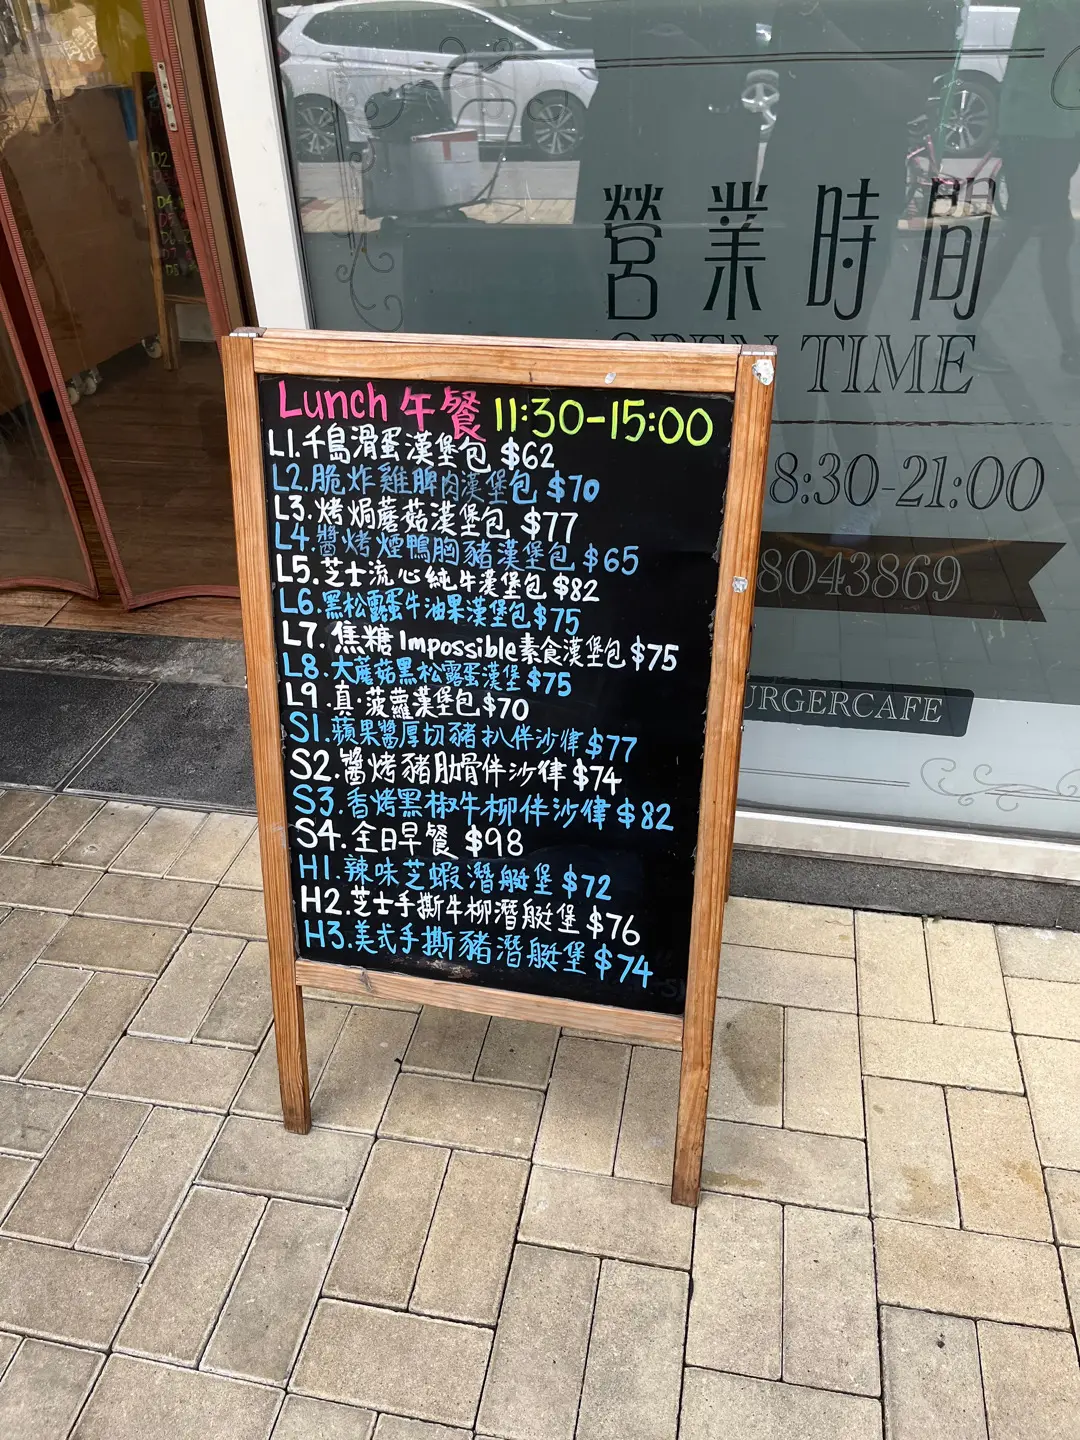 營業時間
OPEN TIME
8:30-21:00
8043869
URGERCAFE
Lunch 午餐 11:30-15:00
L1.千島滑蛋漢堡包 $62
L2.脆炸雞脾肉漢堡包 $70
L3.烤焗蘑菇漢堡包 $77
L4.醬烤煙鴨胸豬漢堡包 $65
L5.芝士流心純牛漢堡包 $82
L6.黑松露蛋牛油果漢堡包 $75
L7.焦糖 Impossible素食漢堡包 $75
L8.大蘑菇黑松露蛋漢堡 $75
L9.真·菠蘿漢堡包 $70
S1.蘋果醬厚切豬扒伴沙律 $77
S2.醬烤豬肋骨伴沙律 $74
S3.香烤黑椒牛柳伴沙律 $82
S4.全日早餐 $98
H1.辣味芝蝦潛艇堡 $72
H2.芝士手撕牛柳潛艇堡 $76
H3.美式手撕豬潛艇堡 $74